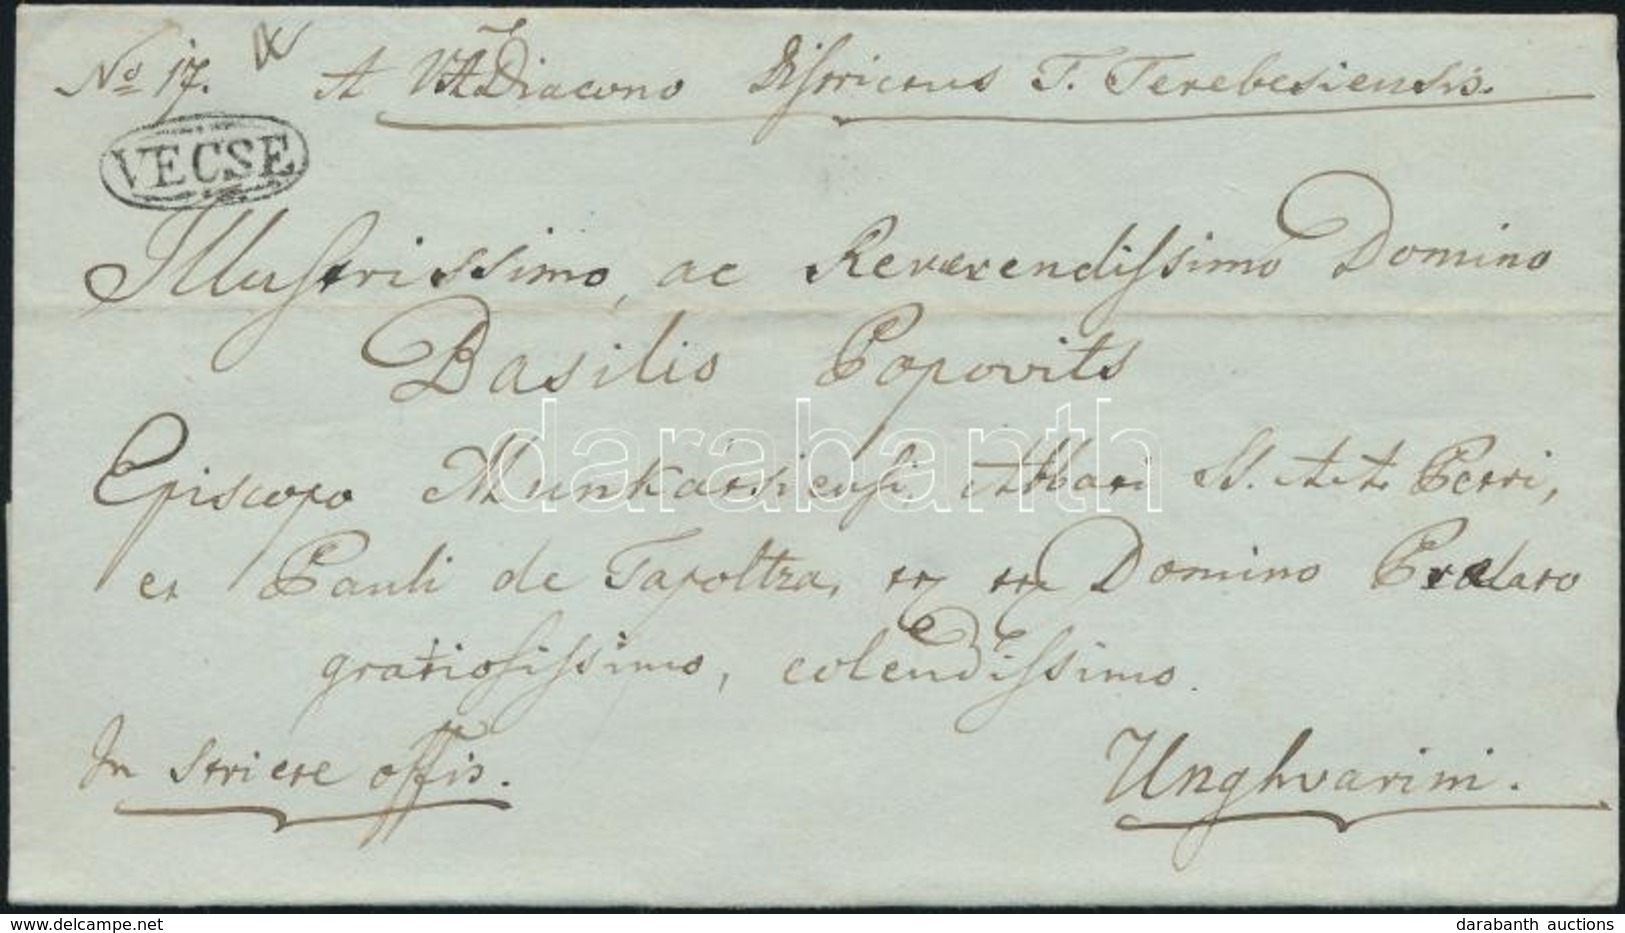 No 17. A V.A.Diacono Districtus T. Terebesiensis.
VECSE
Illustrissimo, ac Reverendissimo Domino
Basilio Popovits
Episcopo Munkátsiensi, Abbati SS. A.A. Petri,
et Pauli de Tapoltza, Domino Praelato
gratiosissimo, colendissimo.
In Stricte offis.
Unghvarini.
darabanth
www.delcampe.net
darabanth auctions